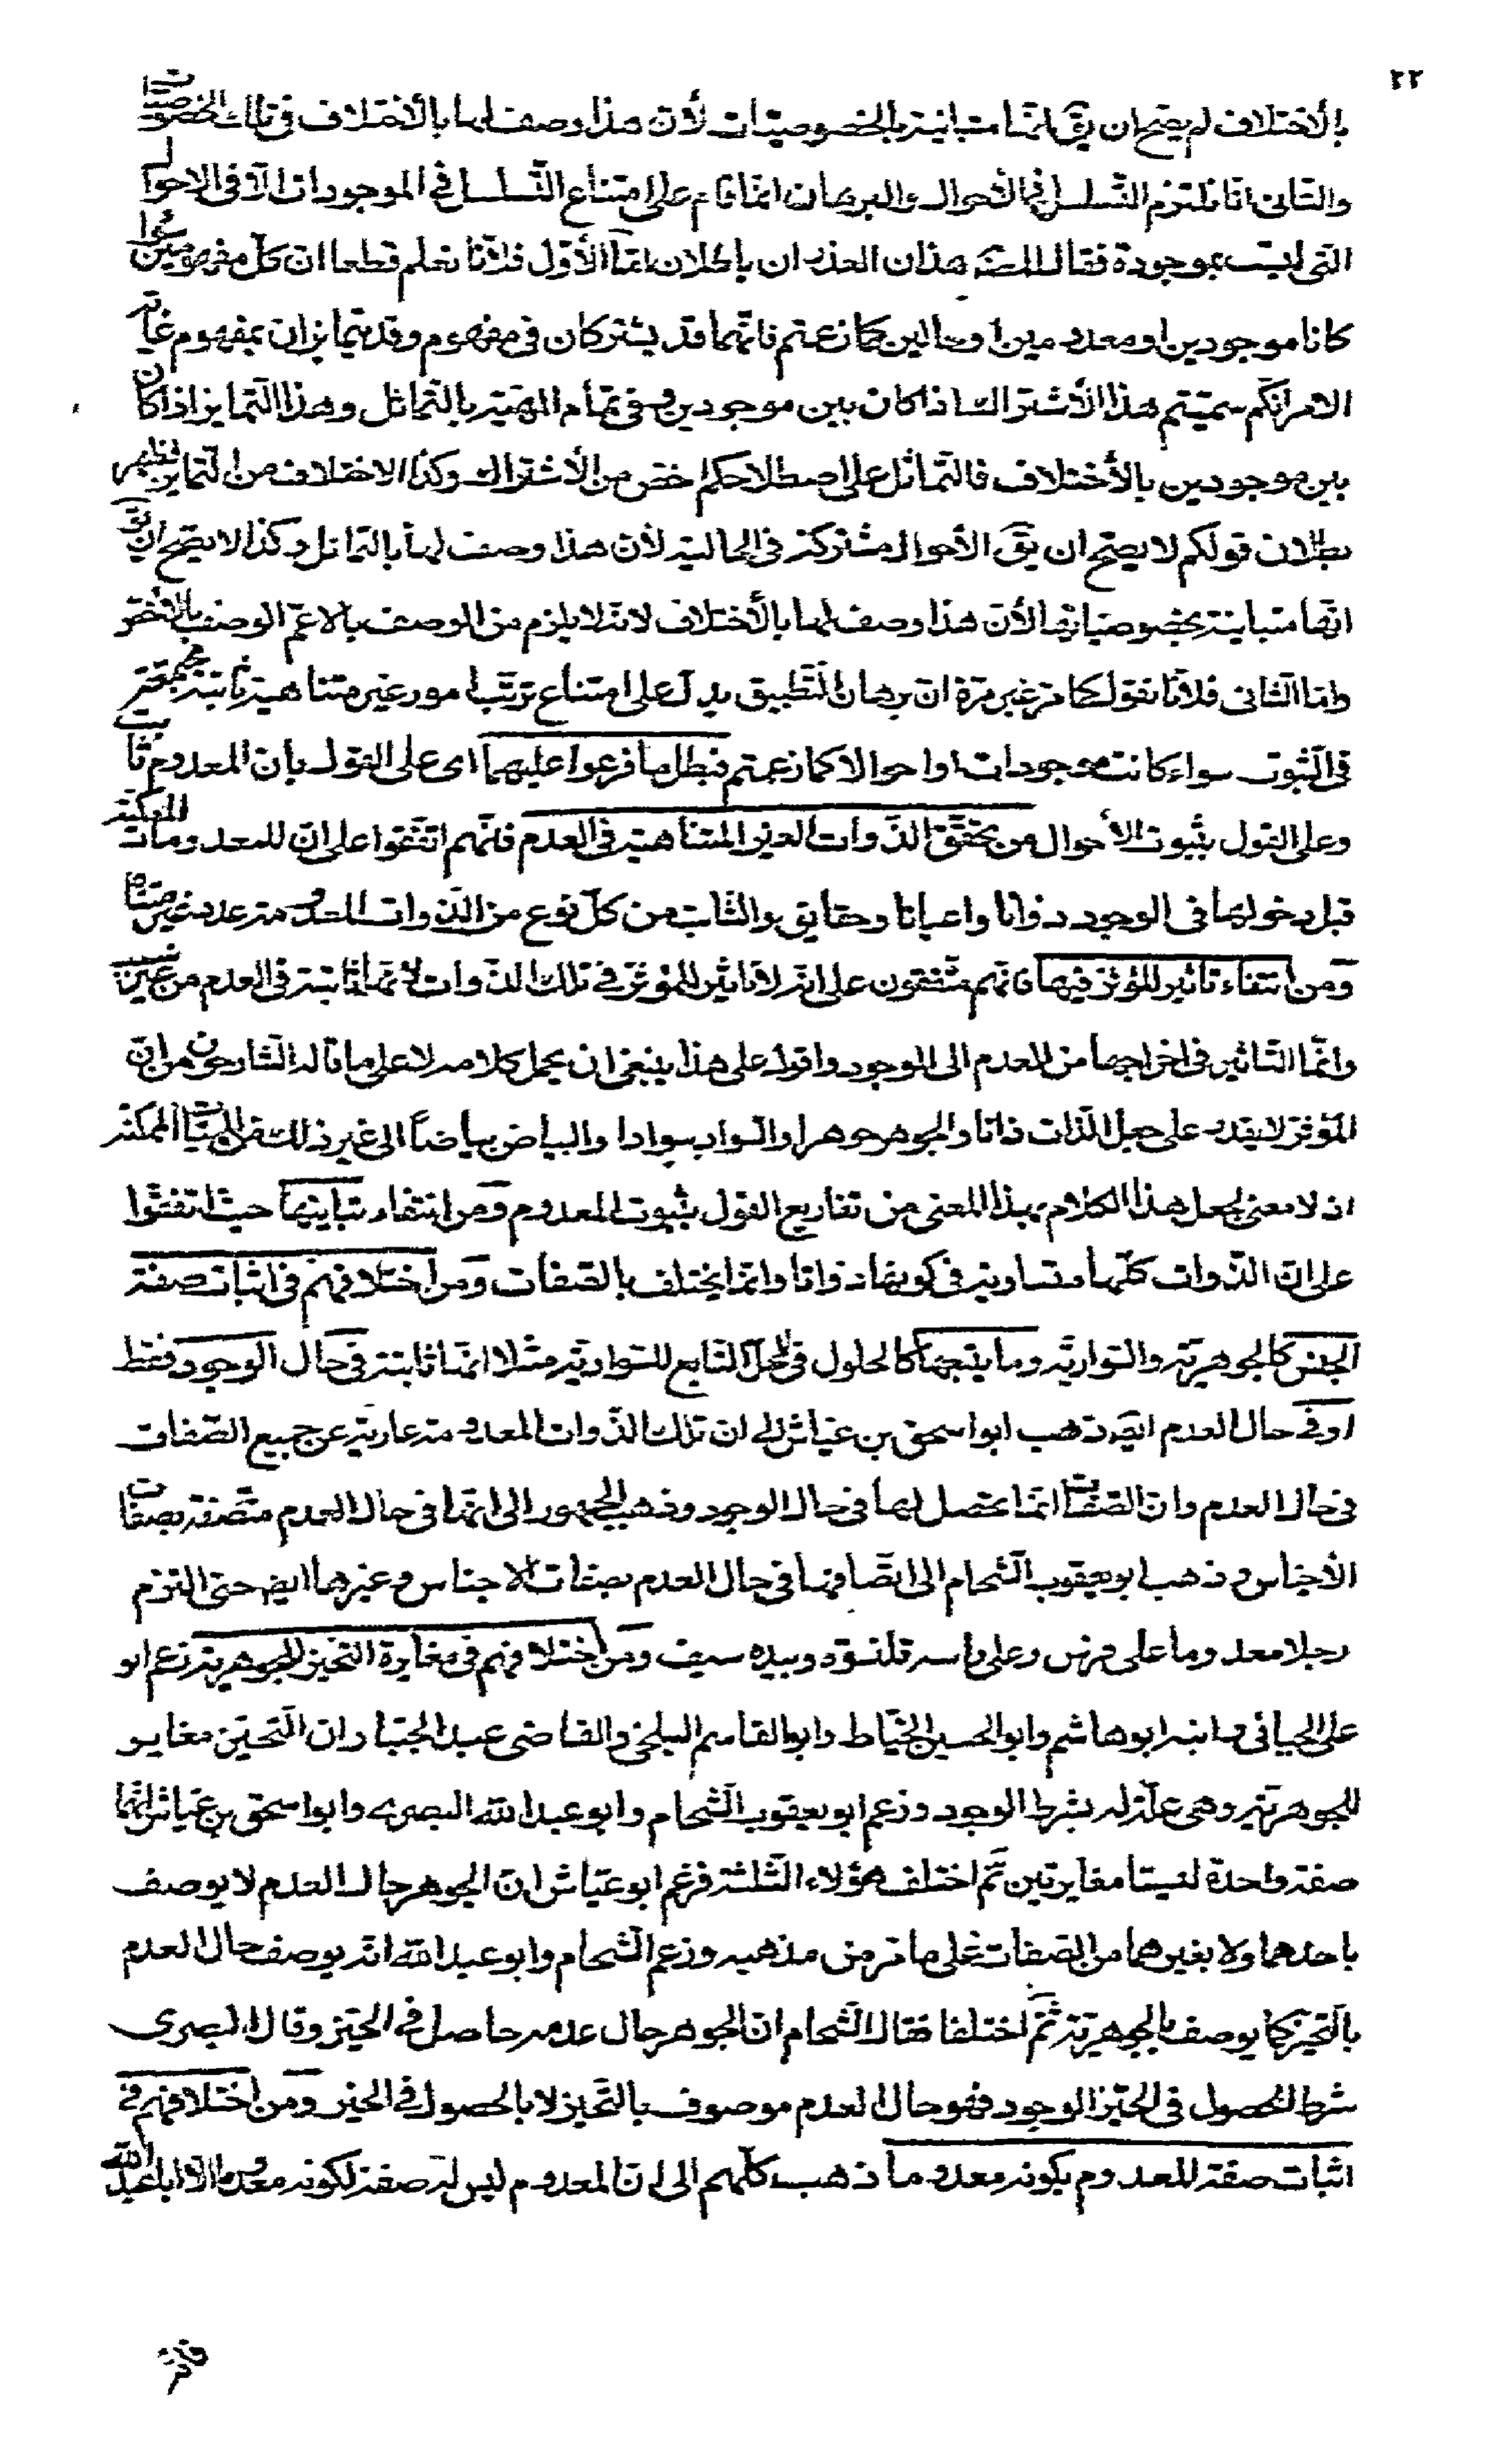 ٢٢
بالأختلاف لم يصح ان يق انها متباينة بالخصوصيات لأن هذا وصف لها بالأختلاف فى تلك الخصوصيات
والثانى انا نلتزم التسلسل فى الأحوال والبرهان انما قام على امتناع التسلسل فى الموجودات لا فى الاحوال
التى ليست بموجودة فقال المصـ هذان العذران باطلان اما الأول فلأنا نعلم قطعا ان كل مفهومين سواء
كانا موجودين او معدومين او حالين كما زعمتم فانهما قد يشتركان فى مفهوم وقد يتمايزان بمفهوم غاية
الامر انكم سميتم هذا الأشتراك اذا كان بين موجودين وفى تمام المهية بالتماثل وهذا التمايز اذا كان
بين موجودين بالأختلاف فالتماثل على اصطلاحكم اخص من الأشتراك وكذا الاختلاف من التمايز فظهر
بطلان قولكم لا يصح ان يق الأحوال مشتركة فى الحالية لأن هذا وصف لها بالتماثل وكذا لا يصح ان يق
انها متباينة بخصوصياتها لأن هذا وصف لها بالأختلاف لانه لا يلزم من الوصف بالاعم الوصف بالاخص
واما الثانى فلأنا نقول كما مر غير مرة ان برهان التطبيق يدل على امتناع ترتب امور غير متناهية ثابتة مجتمعة
فى الثبوت سواء كانت موجودات او احوالا كما زعمتم فبطل ما فرعوا عليهما اى على القول بأن المعدوم ثابت
وعلى القول بثبوت الأحوال من تحقق الذوات الغير المتناهية فى العدم فانهم اتفقوا على ان للمعدومات الممكنة
قبل دخولها فى الوجود ذواتا واعيانا وحقايق والثابت من كل نوع من الذوات المعدومة عدد غير متناه
ومن انتفاء تاثير المؤثر فيها فانهم متفقون على انه لا تاثير للمؤثر فى تلك الذوات لانها ثابتة فى العدم من غير سبب
وانما التاثير فى اخراجها من العدم الى الوجود واقول على هذا ينبغى ان يحمل كلامه لا على ما قاله الشارحون من ان
المؤثر لا يقدر على جعل الذات ذاتا والجوهر جوهرا والسواد سوادا والبياض بياضا الى غير ذلك من المهيات الممكنة
اذ لا معنى لجعل هذا الكلام بهذا المعنى من تفاريع القول بثبوت المعدوم ومن انتفاء تباينها حيث اتفقوا
على ان الذوات كلها متساوية فى كونها ذواتا وانما يختلف بالصفات ومن اختلافهم فى اثبات صفة
الجنس كالجوهرية والسوادية وما يتبعها كالحلول فى المحل التابع للسوادية مثلا انها ثابتة فى حال الوجود فقط
او فى حال العدم ايضـ ذهب ابو اسحق بن عياش الى ان تلك الذوات المعدومة عارية عن جميع الصفات
فى حال العدم وان الصفات انما تحصل لها فى حال الوجود وذهب الجمهور الى انها فى حال العدم متصفة بصفات
الأجناس وذهب ابو يعقوب الشحام الى اتصافها فى حال العدم بصفات الاجناس وغيرها ايضـ حتى التزم
رجلا معدوما على فرس وعلى راسه قلنسوة وبيده سيف ومن اختلافهم فى مغايرة التحيز للجوهرية زعم ابو
على الجبائى وابنه ابو هاشم وابو الحسين الخياط وابو القاسم البلخى والقاضى عبد الجبار ان التحيز مغاير
للجوهرية وهى علة له بشرط الوجود وزعم ابو يعقوب الشحام وابو عبد الله البصرى وابو اسحق بن عياش انهما
صفة واحدة ليستا مغايرتين ثم اختلف هؤلاء الثلثة فزعم ابو عياش ان الجوهر حال العدم لا يوصف
باحدهما ولا بغيرها من الصفات على ما مر من مذهبه وزعم الشحام وابو عبد الله انه يوصف حال العدم
بالتحيز كما يوصف بالجوهرية ثم اختلفا فقال الشحام ان الجوهر حال عدمه حاصل فى الحيز وقال البصرى
شرط الحصول فى الحيز الوجود فهو حال العدم موصوف بالتحيز لا بالحصول فى الحيز ومن اختلافهم فى
اثبات صفة للمعدوم بكونه معدوما ذهب كلهم الى ان المعدوم ليس له صفة لكونه معدوما الا ابا عبد الله